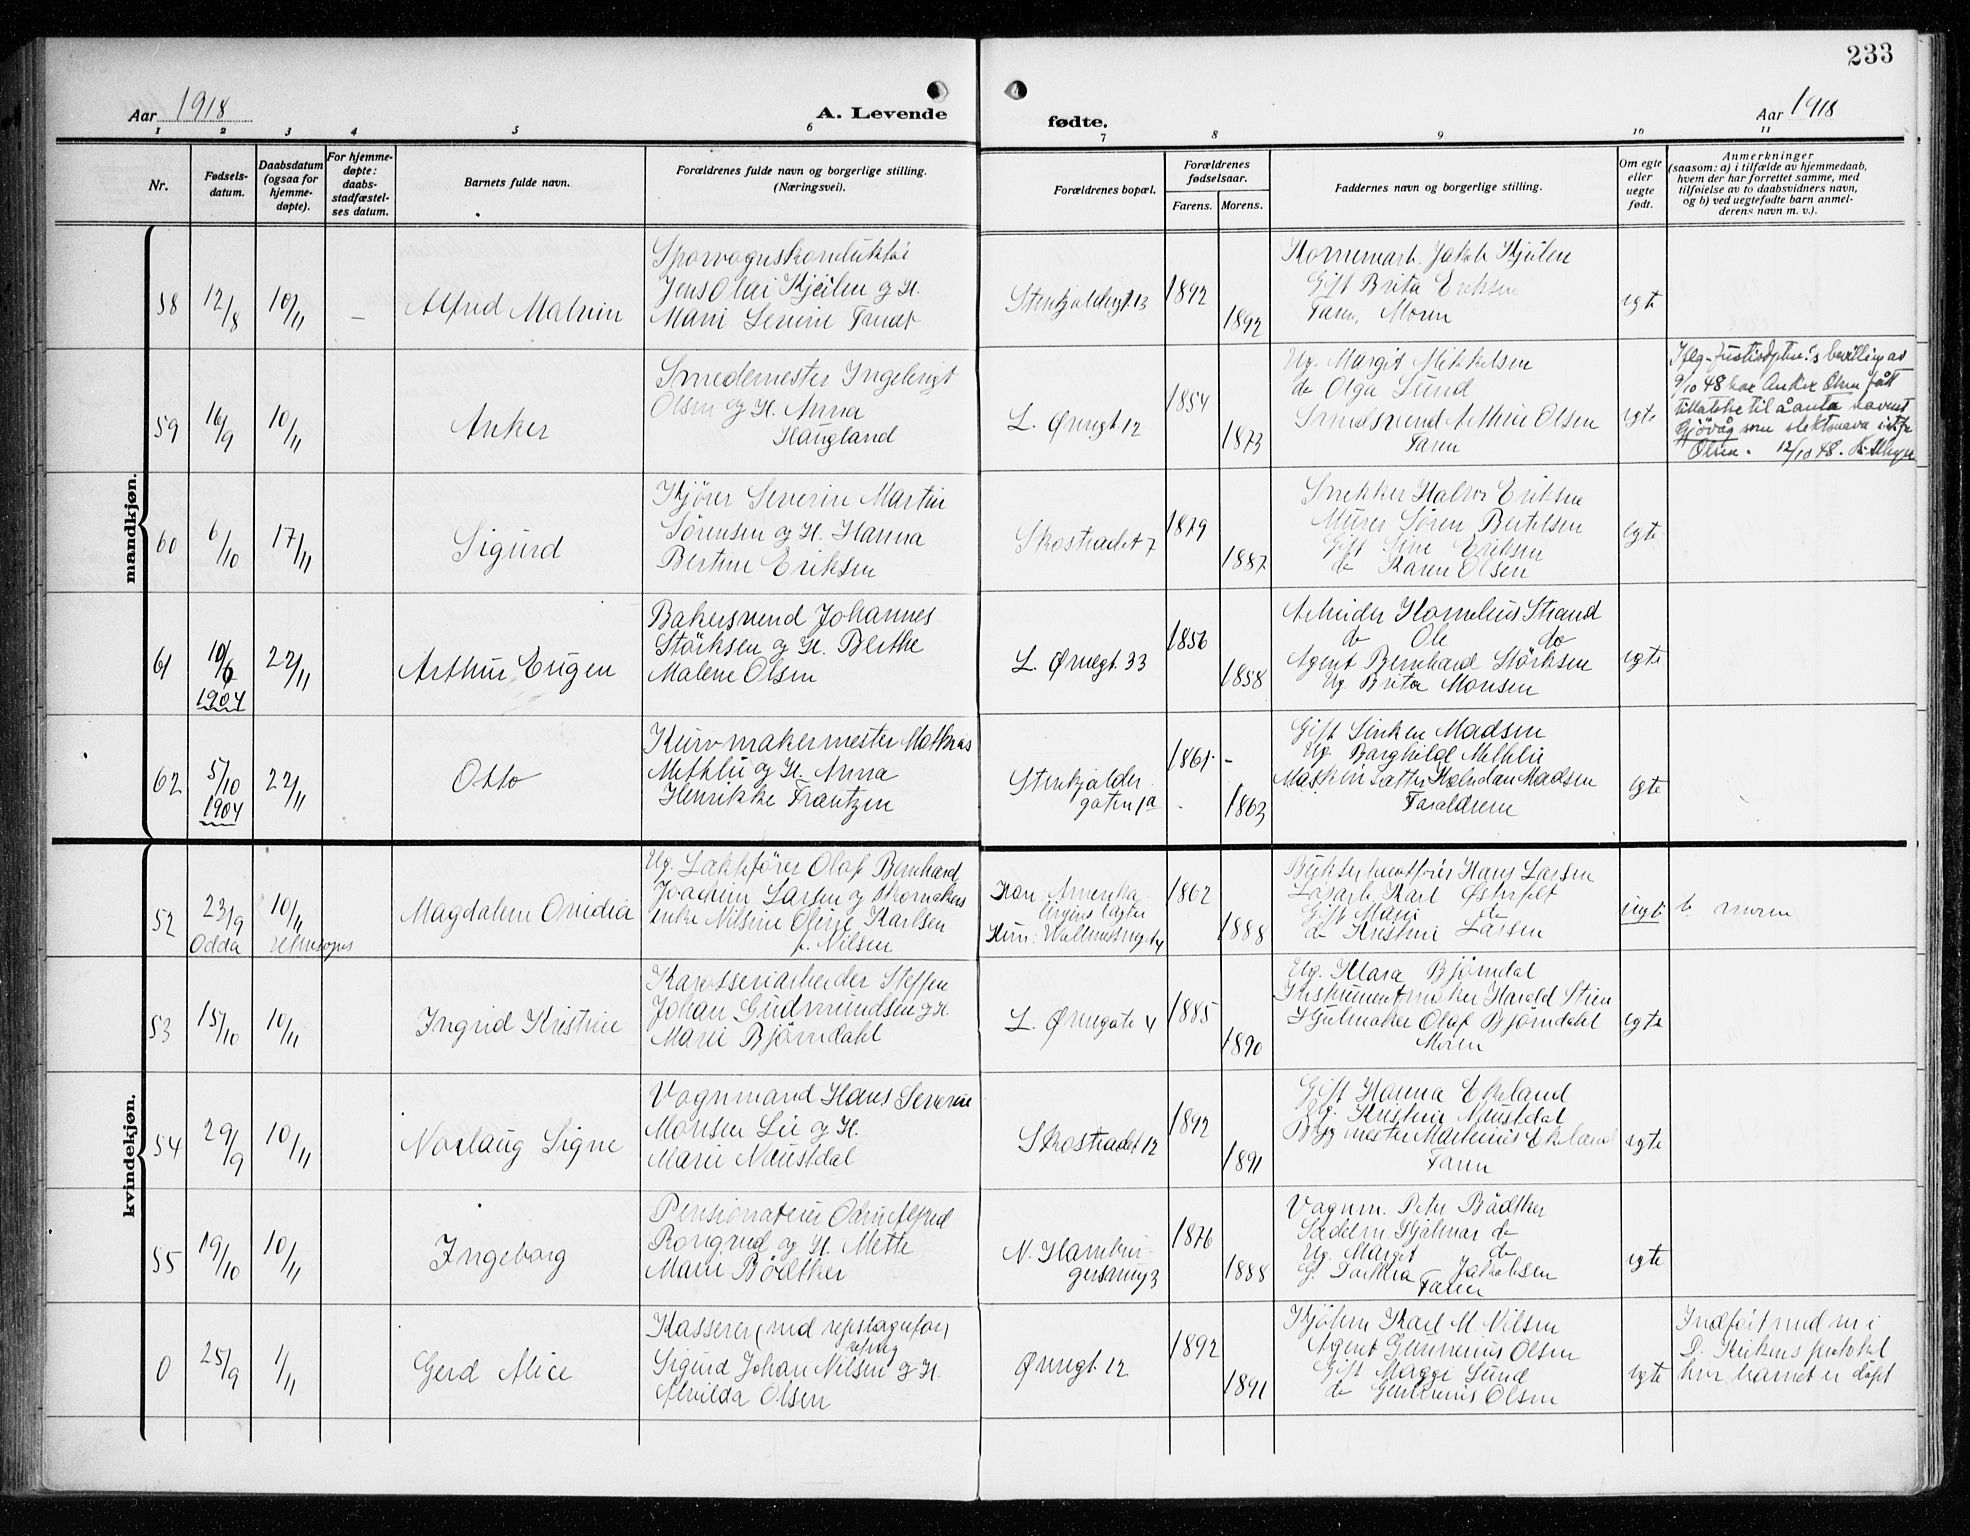 233
Aar 1918
A. Levende
fødte.
Aar 1918
1 2 3 4 5 6 7 8 9 10 11
Nr.
Fødsels-
datum.
Daabsdatum
(ogsaa for
hjemme-
døpte).
For hjemme-
døpte:
daabs-
stadfæstel-
ses datum.
Barnets fulde navn.
Forældrenes fulde navn og borgerlige stilling.
(Næringsvei).
Forældrenes bopæl.
Forældrenes
fødselsaar.
Farens. Morens.
Faddernes navn og borgerlige stilling.
Om egte
eller
uegte
født.
Anmerkninger
(saasom: a) i tilfælde av hjemmedaab,
hvem der har forrettet samme, med
tilføielse av to daabsvidners navn,
og b) ved uegtefødte barn anmel-
derens navn m. v.).
mandkjøn.
58 12/8 10/11 – Alfred Malvin
Sporvognskonduktör
Jens Olai Kjeilen og H.
Marie Severine
13 1892 1892
Jakob Kjeilen
Gift Brita Eriksen
Faren, Moren
egte
59 16/9 10/11 Anker
Smedemester Ingebrigt
Olsen og H. Anna
Haugland
L. Øvregt 12 1854 1873
Ug. Margit Mikkelsen
do Olga Lund
Smedsvend Arthur Olsen
Faren
egte
Iflg. Justisdptm.'s bevilling av
9/10 48 har Anker Olsen fått
tillatelse til å anta navnet
Gjövåg som slektsnavn istf.
Olsen. 12/10 48.
60 6/10 17/11 Sigurd
Kjörer Severin Martin
Sörensen og H. Hanna
Bertine Eriksen
Skostrædet 7 1879 1887
Snekker Halvor Eriksen
Murer Sören Bertelsen
Gift Sine Eriksen
do Karen Olsen
egte
61 10/6 1904 22/11 Arthur Eugen
Bakersvend Johannes
Störksen og H. Berthe
Malene Olsen
L. Øvregt 33 1856 1858
Arbeider Kornelius Strand
do Ole do
Agent Bernhard Störksen
Ug. Brita Monsen
egte
62 5/10 1904 22/11 Otto
Kurvmakermester Mathias
Methlie og H. Anna
Henrikke Frantzen
Stenkjælder-
gaten 1a 1861 - - 1863
Gift Sinken Madsen
Ug. Borghild Methlie
Maskinsætter Halvdan Madsen
Forældrene
egte
kvindekjøn.
52 23/9 Odda 10/11 Magdalene Ovidia
Ug. Olaf Bernhard
Joachim Larsen og
enke Nilsine Oline Karlsen
f. Nilsen
Han: Amerika
Hun:
1862 1888
Hans Larsen
Karl
Gift Marie do
do Kristine Larsen
uegte
moren
53 15/10 10/11 Ingrid Kristine
Karosseriarbeider Steffen
Johan Gudmundsen og H.
Marie Björndahl
L. Øvregate 4 1885 1890
Ug. Klara Björndal
Instrumentmaker Harald Stien
Hjulmaker Olaf Björndahl
Moren
egte
54 29/9 10/11 Norlaug Signe
Vognmand Hans Severin
Monsen Lie og H.
Marie Naustdal
Skostrædet 12 1892 1891
Gift Hanna Ekeland
Ug. Kristine Naustdal
Bygmester Martinius Ekeland
Faren
egte
55 19/10 10/11 Ingeborg
Alfred
og H. Mette
Marie Bödtker
N. Hambur-
gersmug 3 1876 1888
Vognm. Peter Bödtker
Sadelm. Hjalmar do
Ug. Margit do
G. Jakobsen
Faren
egte
0 25/9 1/11 Gerd Alice
Kasserer (ved
Sigurd Johan Nilsen og H.
Alvilda Olsen
Øvregt. 12 1892 1891
Karl M. Nilsen
Agent Gunnerius Olsen
Gift Maggi Lund
do Gunnerius Olsen
egte
Indfört under nr i
D. Kirkens protokol
hvor barnet er døpt